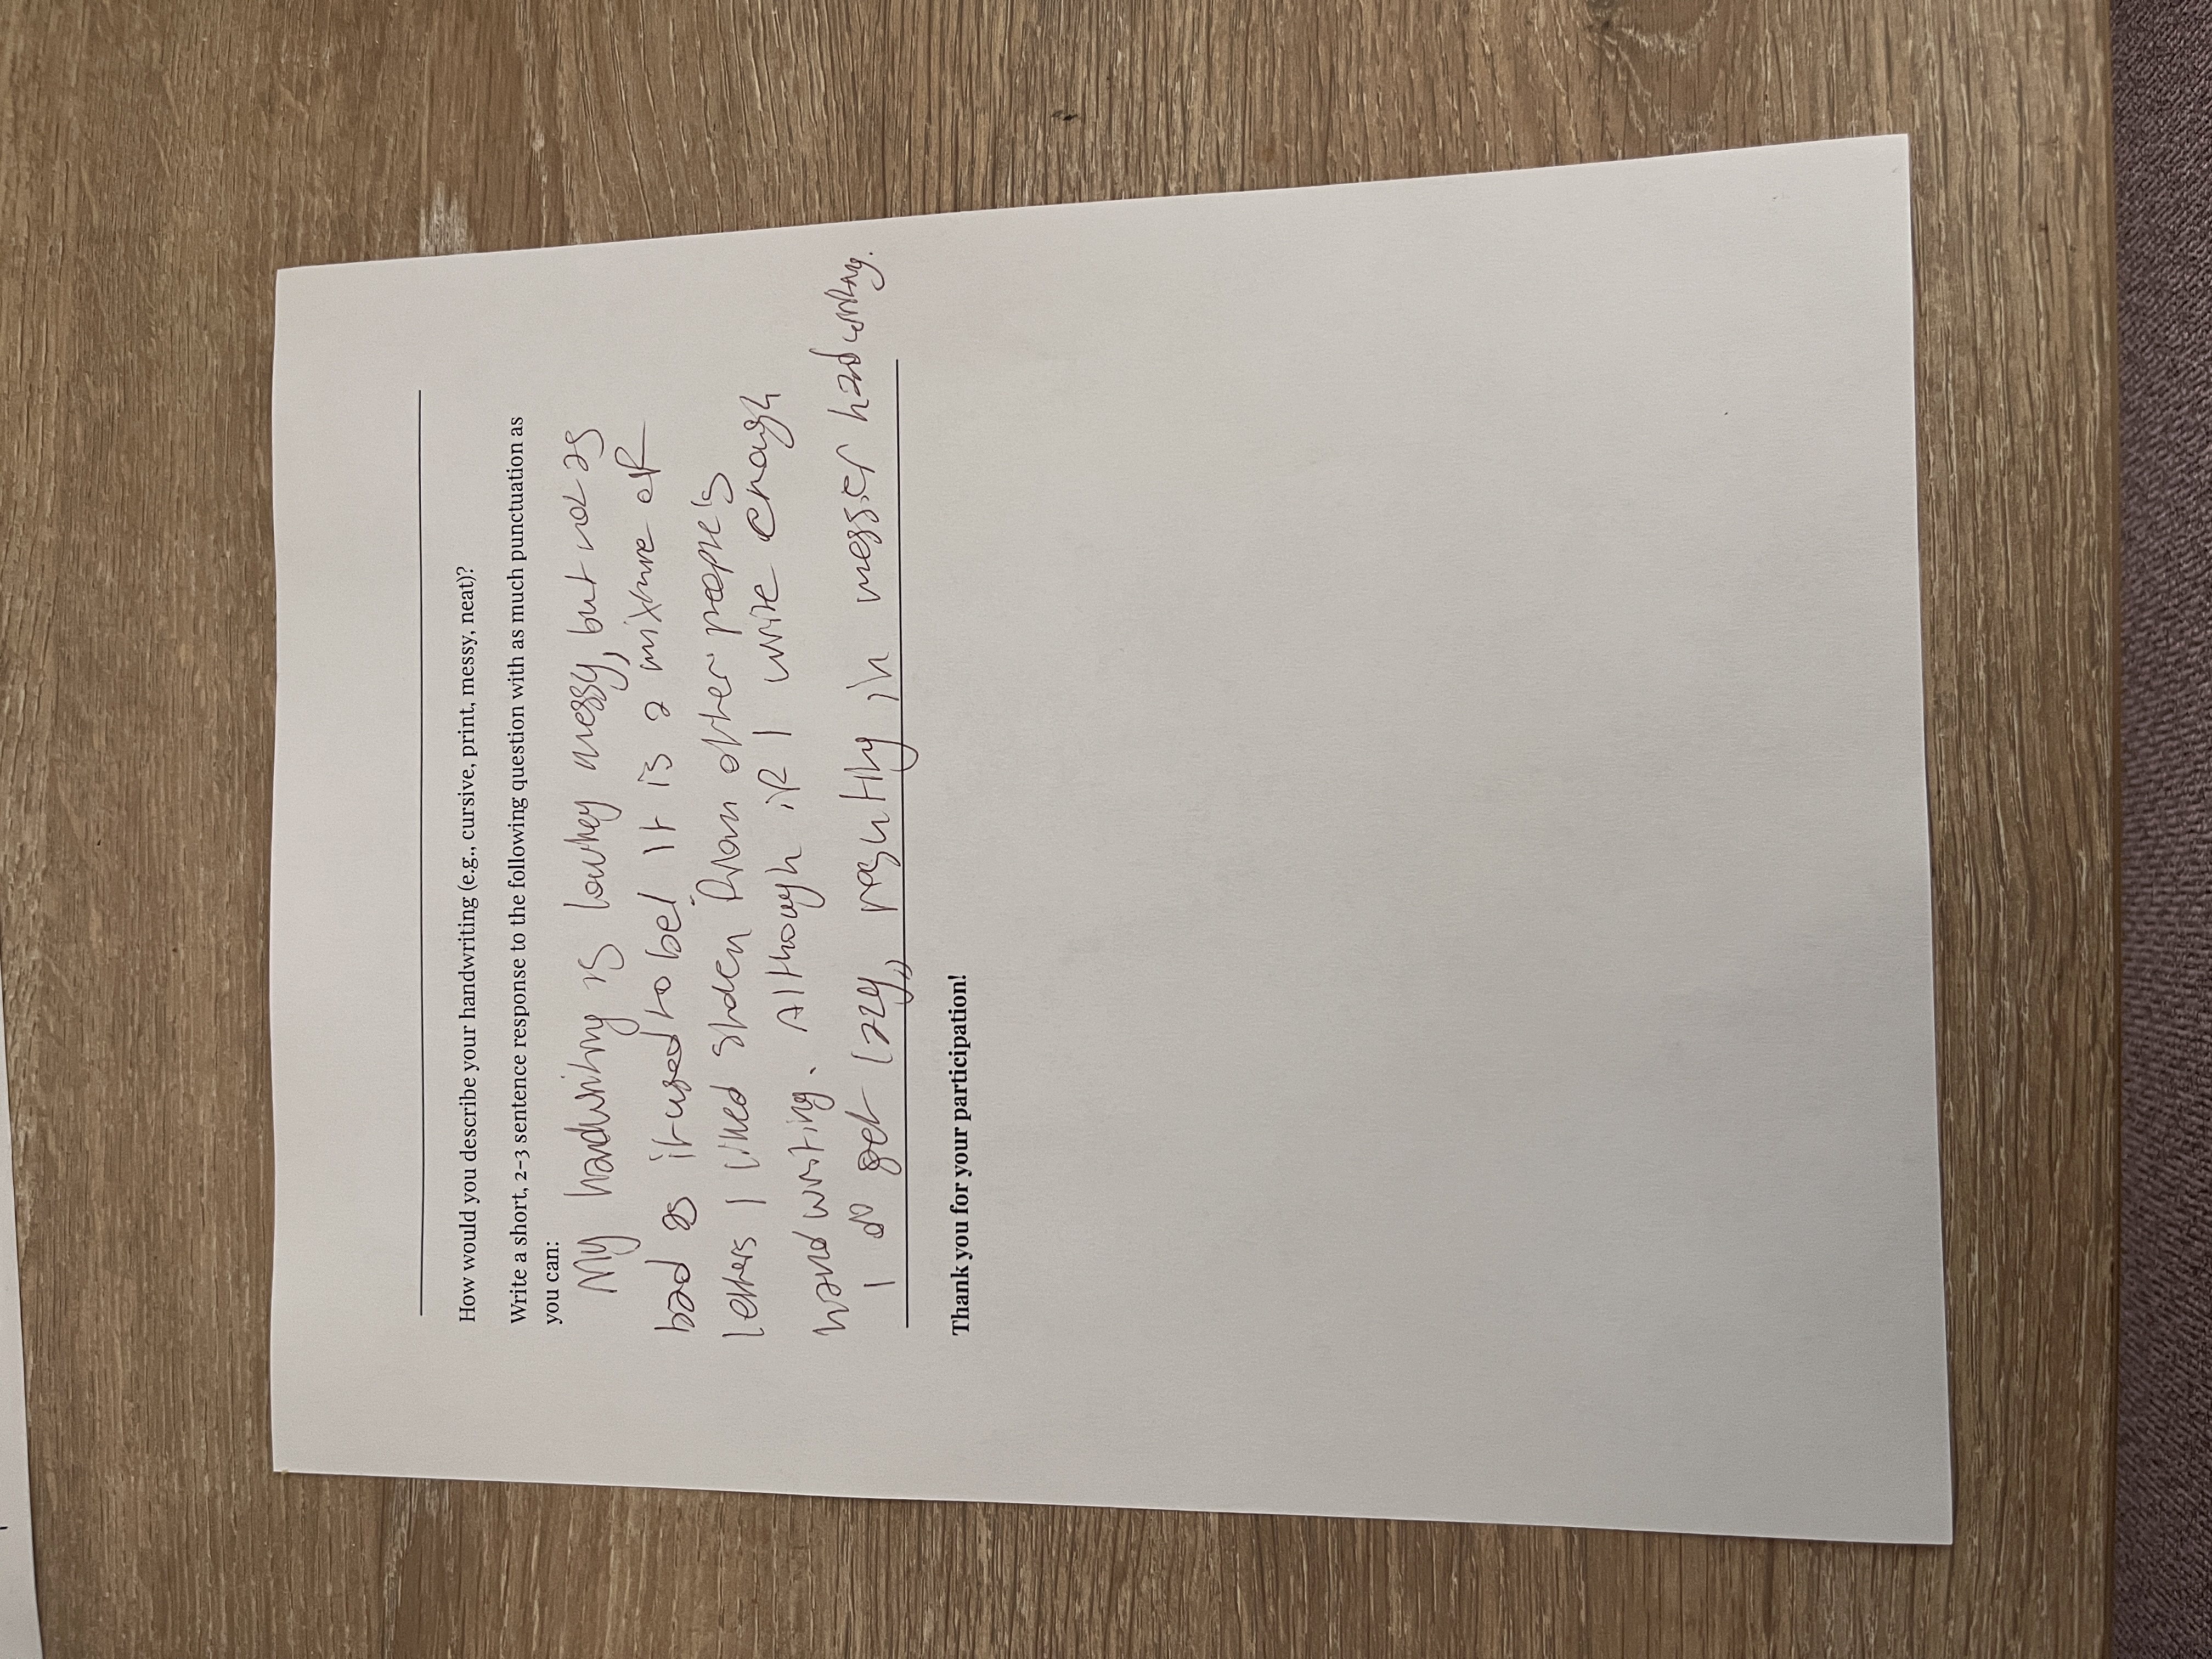 How would you describe your handwriting (e.g., cursive, print, messy, neat)?
Write a short, 2-3 sentence response to the following question with as much punctuation as
you can:
My handwriting is lowkey messy, but not as
bad as it used to be! It is a mixture of
letters I liked stolen from other people's
handwriting. Although if I write enough
I do get lazy, resulting in messier handwriting.
Thank you for your participation!